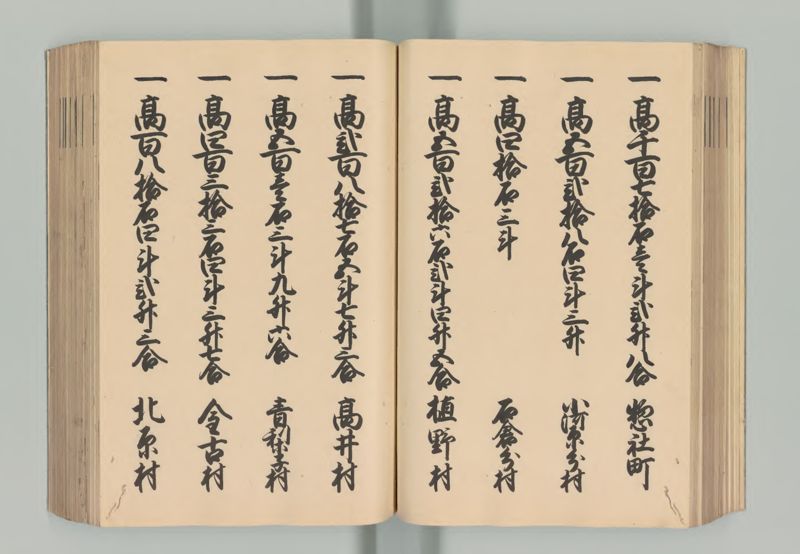 一高千百七拾石壱斗弐升八合 惣社町
一高五百弐拾八石四斗三升 村
一高四拾石三斗 石倉分村
一高五百弐拾六石弐斗四升五合 植野村
一高弐百八拾七石五斗七升二合 高井村
一高五百壱石三斗九升六合 青梨子村
一高四百三拾三石四斗三升七合 金古村
一高百八拾石四斗弐升三合 北原村